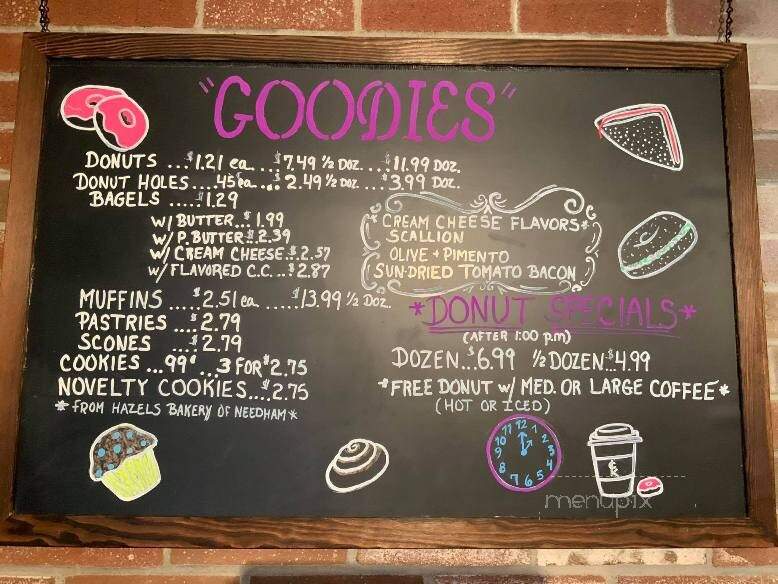 "GOODIES"
DONUTS ... $1.21 ea ... $7.49 ½ DOZ. ... $11.99 DOZ.
DONUT HOLES ....45 ea ... $2.49 ½ DOZ. ... $3.99 DOZ.
BAGELS ..... $1.29
W/ BUTTER .. $1.99
W/ P. BUTTER .. $2.39
W/ CREAM CHEESE . $2.57
W/ FLAVORED C.C. ... $2.87
CREAM CHEESE FLAVORS*
SCALLION
OLIVE + PIMENTO
SUN-DRIED TOMATO BACON
MUFFINS .... $2.51 ea ..... $13.99 ½ Doz.
PASTRIES ... $2.79
SCONES ... $2.79
COOKIES ... 99¢ .. 3 FOR $2.75
NOVELTY COOKIES .... $2.75
* FROM HAZELS BAKERY OF NEEDHAM *
*DONUT SPECIALS*
(AFTER 1:00 p.m)
DOZEN .. $6.99 ½ DOZEN .. $4.99
*FREE DONUT w/ MED. OR LARGE COFFEE*
(HOT OR ICED)
11 12 1
10 2
9 3
8 4
7 6 5
menupix